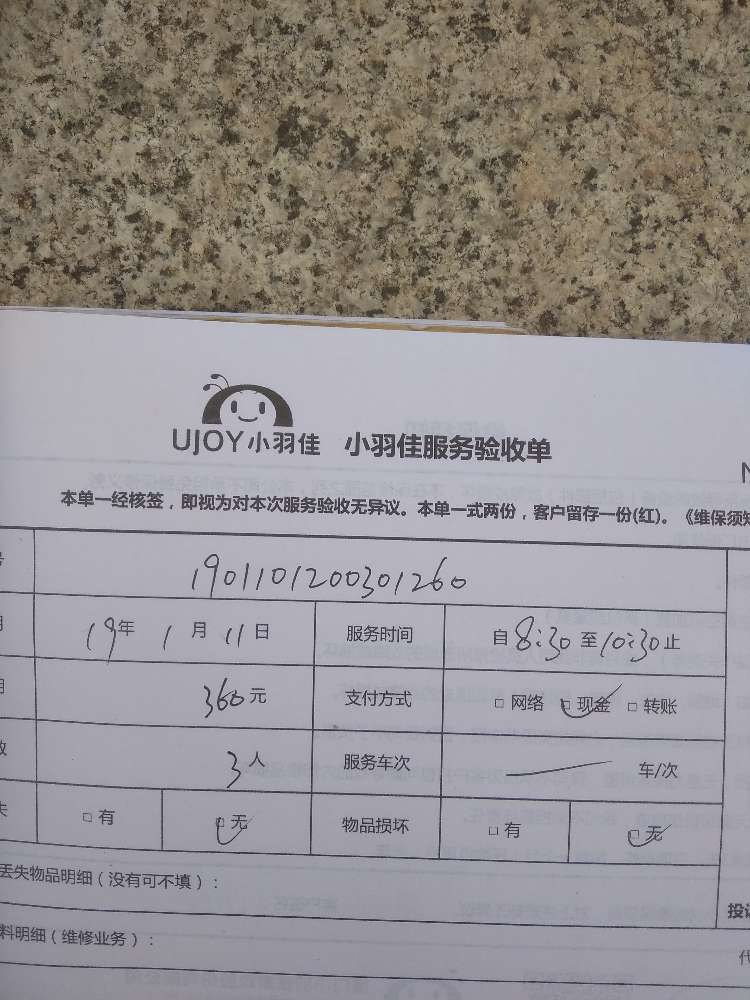 UJOY小羽佳 小羽佳服务验收单
N
本单一经核签，即视为对本次服务验收无异议。本单一式两份，客户留存一份(红)。《维保须知
号 1901101200301260
期 19年 1月 11日 服务时间 自8:30至10:30止
用 360元 支付方式 □网络 □现金 □转账
数 3人 服务车次 车/次
失 □有 □无 物品损坏 □有 □无
丢失物品明细（没有可不填）：
投诉
料明细（维修业务）：
代